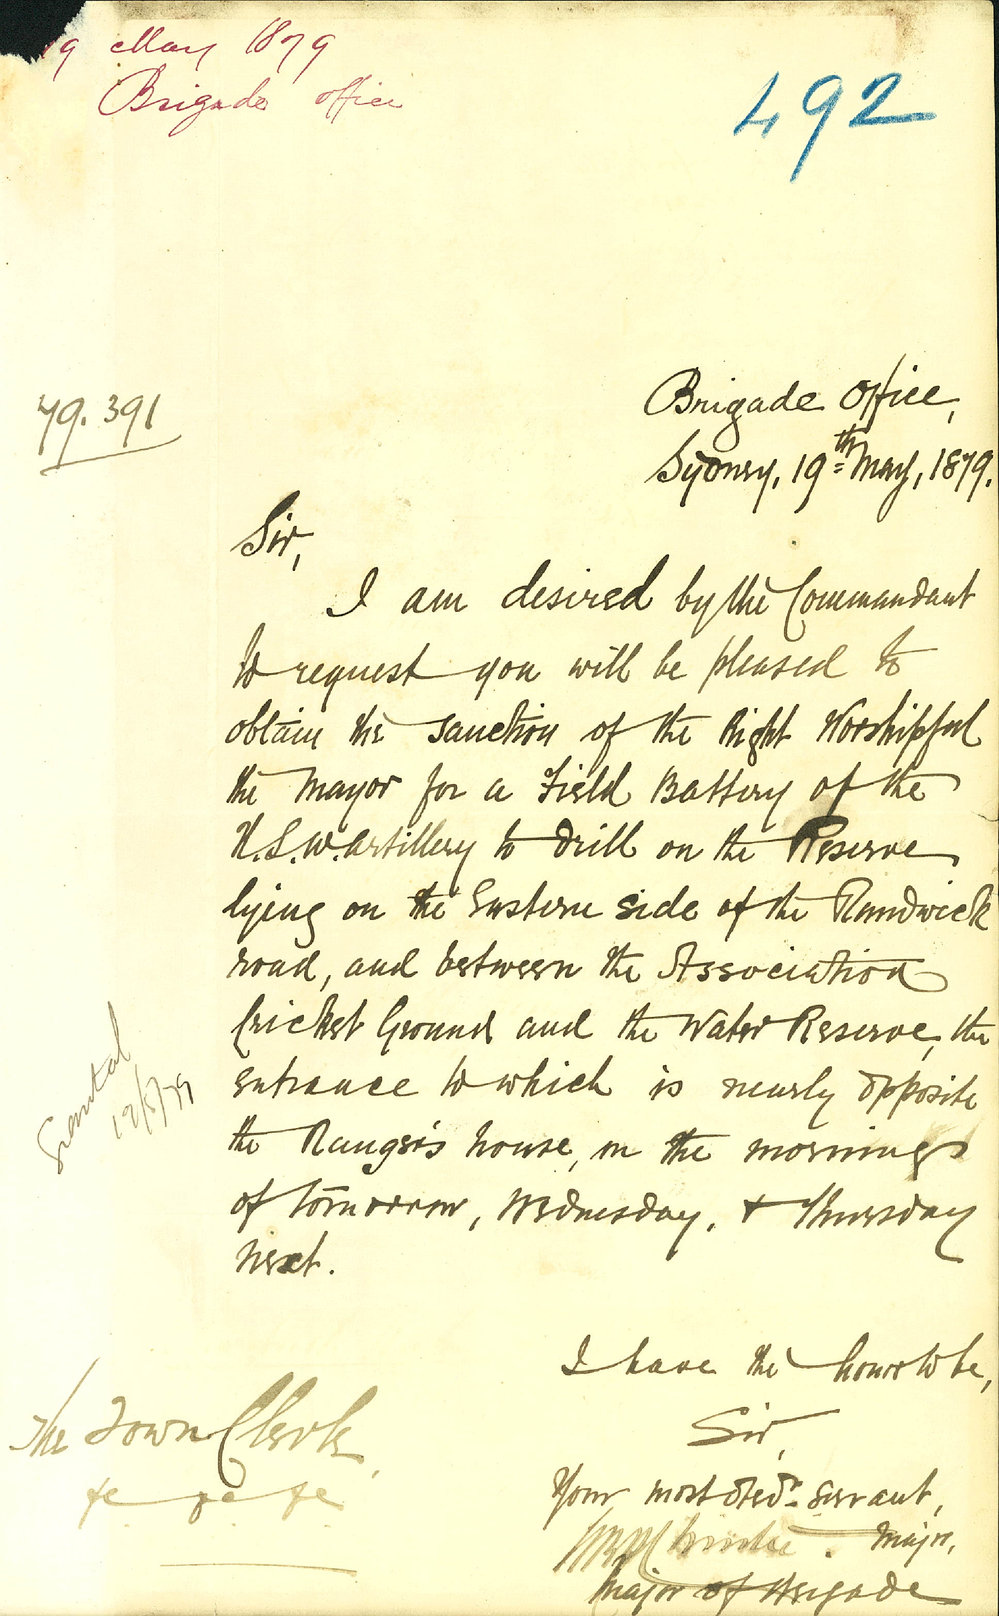 19 May 1879
Brigade Office
492
79.391
Brigade Office,
Sydney, 19th May, 1879.
Sir,
I am desired by the Commandant
to request you will be pleased to
obtain the sanction of the Right Worshipful
the Mayor for a Field Battery of the
N.S.W. Artillery to drill on the Reserve
lying on the Eastern side of the Randwick
road, and between the Association
Cricket Ground and the Water Reserve, the
entrance to which is nearly opposite
the Ranger's house, in the mornings
of tomorrow, Wednesday, & Thursday
next.
Granted
19/5/79
I have the honor to be,
Sir,
Your most obedt. servant,
Major,
Major of Brigade
The Town Clerk,
&c &c &c